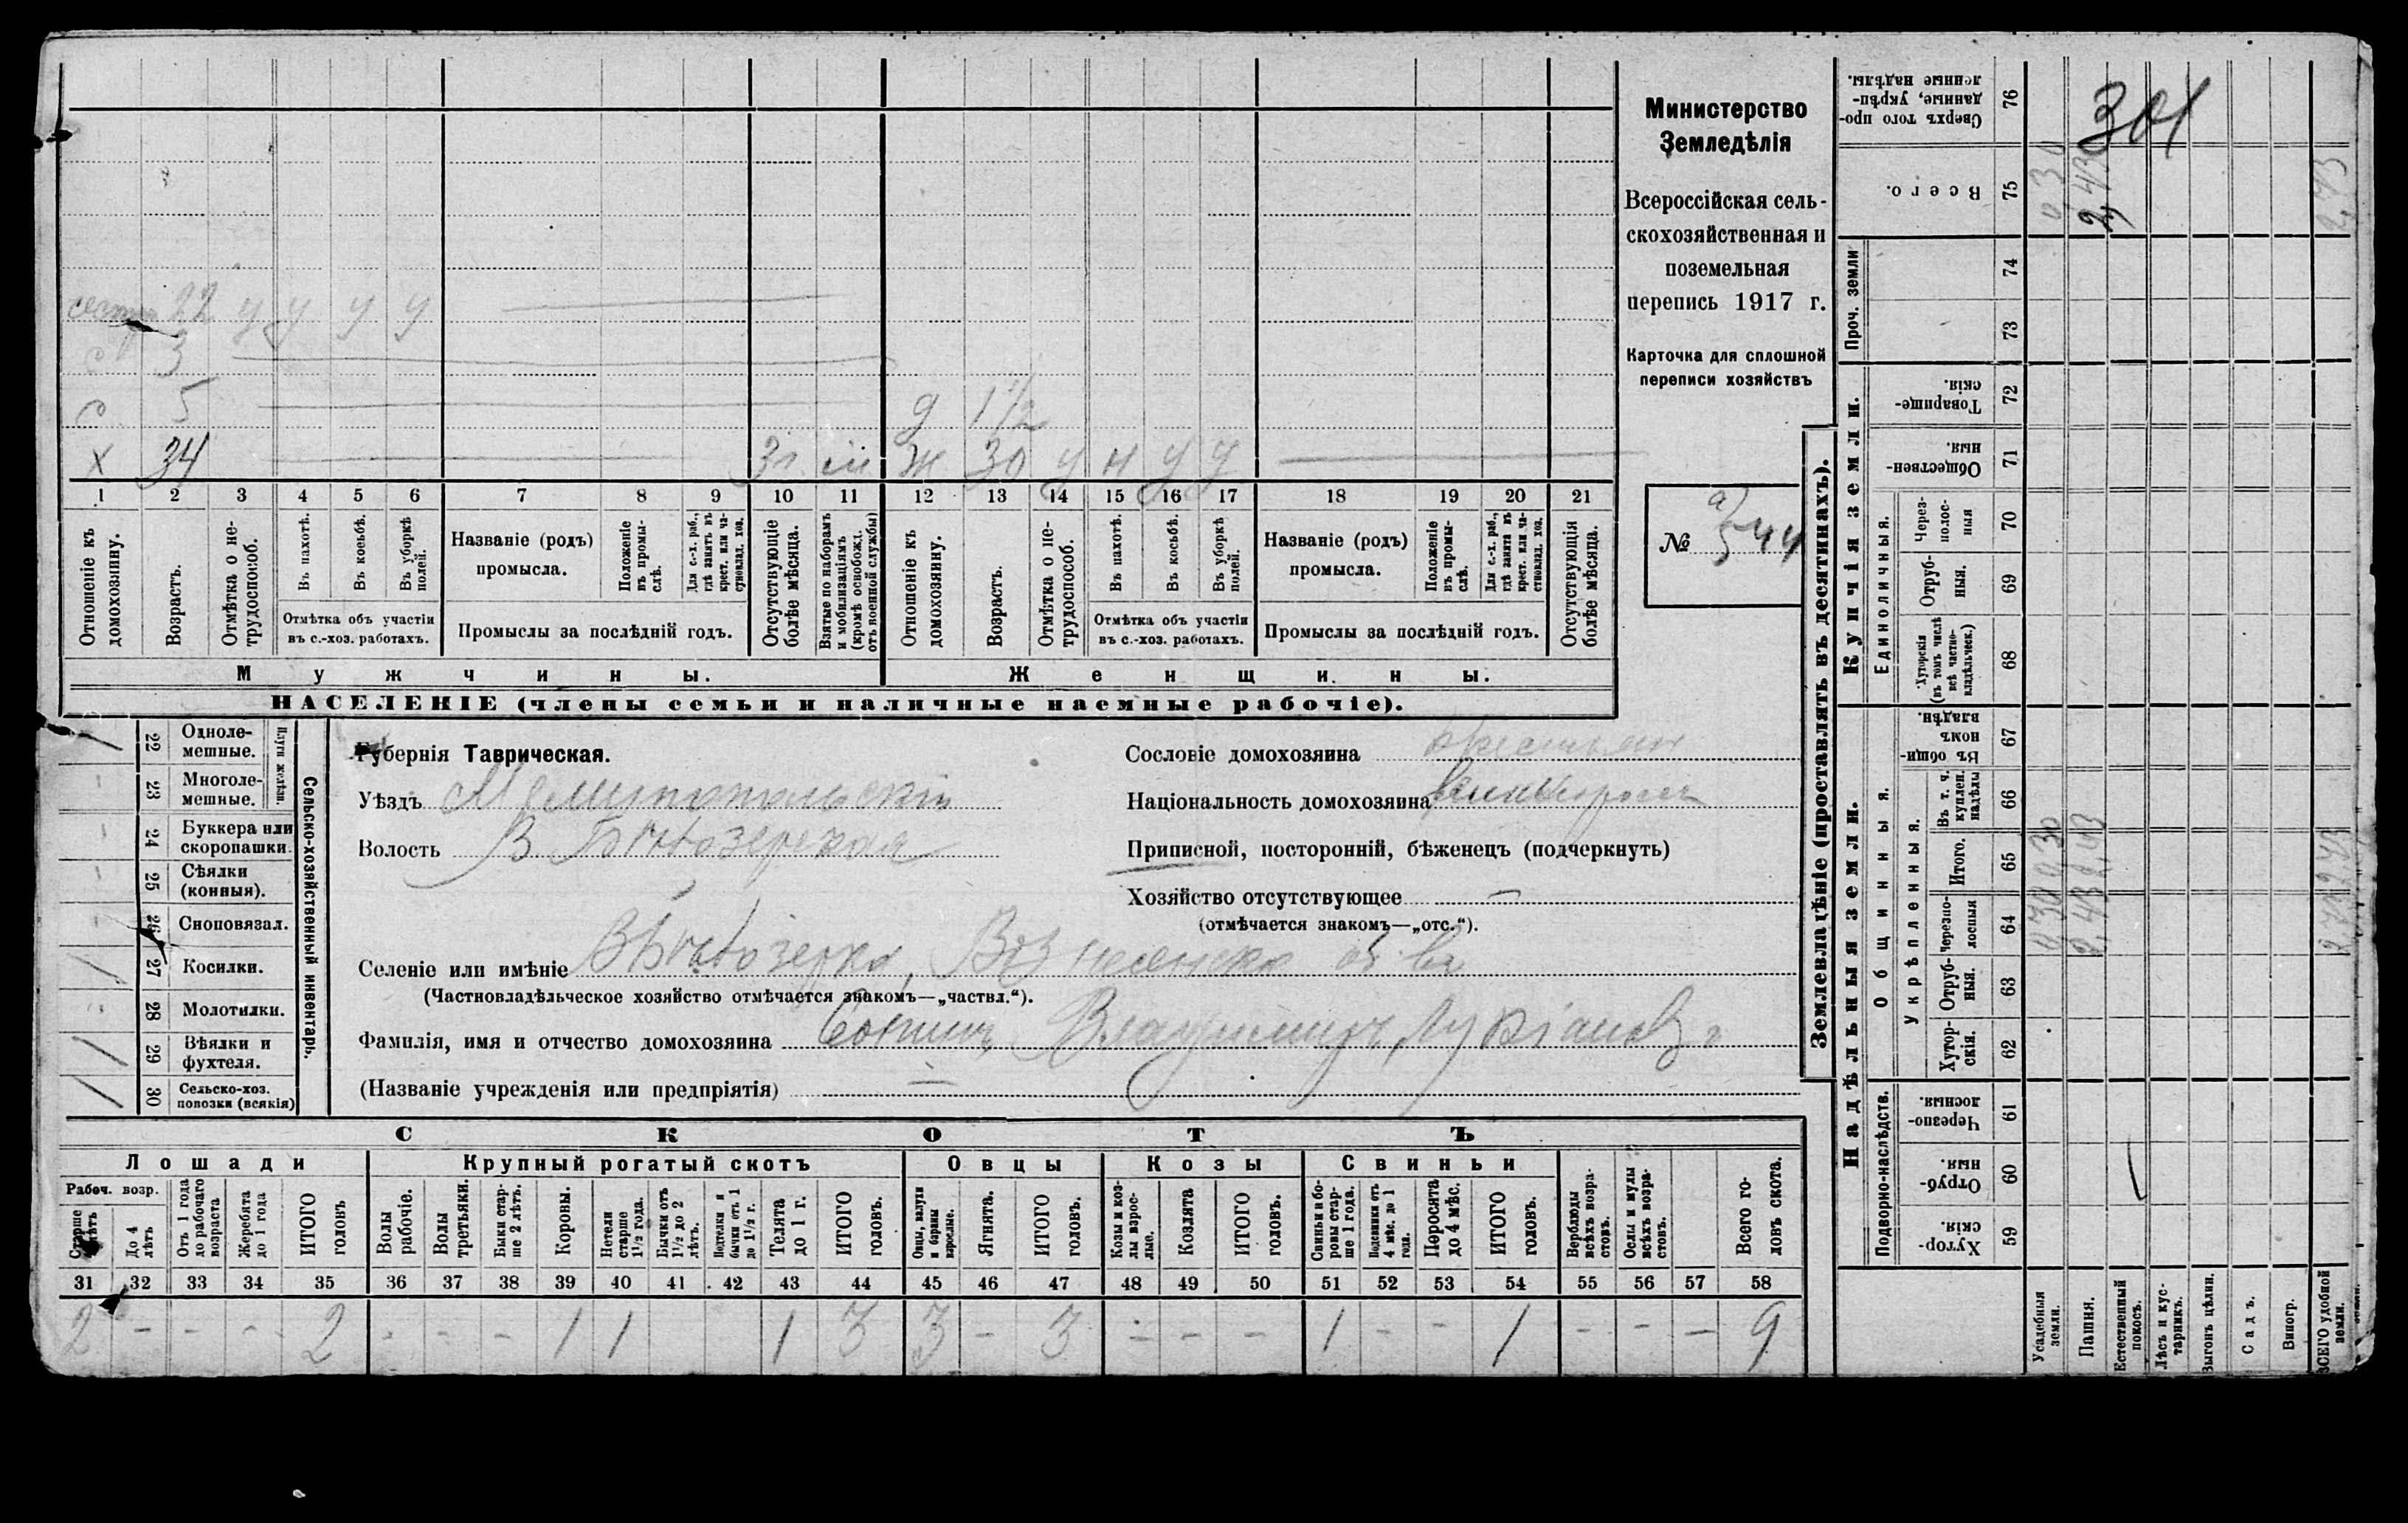 Министерство
Земледѣлія
Всероссійская сель-
скохозяйственная и
поземельная
перепись 1917 г.
Карточка для сплошной
переписи хозяйствъ
№ 544
22 у у у у
с 3
с 5 д 1 1/2
х 34 ж 30 у н у у
1 2 3 4 5 6 7 8 9 10 11 12 13 14 15 16 17 18 19 20 21
Отношеніе къ домохозяину.
Возрастъ.
Отмѣтка о не-трудоспособ.
Въ пахотѣ.
Въ косьбѣ.
Въ уборкѣ полей.
Отмѣтка объ участіи въ с.-хоз. работахъ.
Названіе (родъ) промысла.
Положеніе въ промы-слѣ.
Для с.-х. раб., гдѣ занятъ въ крест. или ча-стновлад. хоз.
Промыслы за послѣдній годъ.
Отсутствующіе болѣе мѣсяца.
Взятые по наборамъ и мобилизаціямъ (кромѣ освобожд. отъ военной службы)
Отношеніе къ домохозяину.
Возрастъ.
Отмѣтка о не-трудоспособ.
Въ пахотѣ.
Въ косьбѣ.
Въ уборкѣ полей.
Отмѣтка объ участіи въ с.-хоз. работахъ.
Названіе (родъ) промысла.
Положеніе въ промы-слѣ.
Для с.-х. раб., гдѣ занята въ крест. или ча-стновлад. хоз.
Промыслы за послѣдній годъ.
Отсутствующія болѣе мѣсяца.
Мужчины. Женщины.
НАСЕЛЕНІЕ (члены семьи и наличные наемные рабочіе).
Сельско-хозяйственный инвентарь.
Плуги желѣзн.
22 Одноле-мешные.
23 Многоле-мешные.
24 Буккера или скоропашки.
25 Сѣялки (конныя).
26 Сноповязал.
27 Косилки.
28 Молотилки.
29 Вѣялки и фухтеля.
30 Сельско-хоз. повозки (всякія)
Губернія Таврическая.
Уѣздъ Мелитопольскій
Волость В Бѣлозерская
Сословіе домохозяина крестьян
Національность домохозяина великоросъ
Приписной, посторонній, бѣженецъ (подчеркнуть)
Хозяйство отсутствующее —
(отмѣчается знакомъ—„отс.“).
Селеніе или имѣніе В Бѣлозерка, Вознесенско
(Частновладѣльческое хозяйство отмѣчается знакомъ—„частвл.“).
Фамилія, имя и отчество домохозяина Владимиръ Лукіанов
(Названіе учрежденія или предпріятія) —
СКОТЪ
Лошади Крупный рогатый скотъ Овцы Козы Свиньи
Рабоч. возр.
До 4 лѣтъ
Отъ 1 года до рабочаго возраста
Жеребята до 1 года
ИТОГО головъ
Волы рабочіе.
Волы третьяки.
Быки стар-ше 2 лѣтъ.
Коровы.
Нетели старше 1½ года.
Бычки отъ 1½ до 2 лѣтъ.
Подтелки и бычки отъ 1 до 1½ г.
Телята до 1 г.
ИТОГО головъ.
Овцы, валухи и бараны взрослые.
Ягнята.
ИТОГО головъ.
Козы и коз-лы взрос-лые.
Козлята
ИТОГО головъ.
Свиньи и бо-ровы стар-ше 1 года.
Подсвинки отъ 4 мѣс. до 1 года.
Поросята до 4 мѣс.
ИТОГО головъ.
Верблюды всѣхъ возра-стовъ.
Ослы и мулы всѣхъ возра-стовъ.
Всего го-ловъ скота.
31 32 33 34 35 36 37 38 39 40 41 42 43 44 45 46 47 48 49 50 51 52 53 54 55 56 57 58
2 - - - 2 - - - 1 1 1 3 3 - 3 - - - 1 - - 1 - - - 9
Землевладѣніе (проставлять въ десятинахъ).
Надѣльныя земли. Купчія земли. Проч. земли
Подворно-наслѣдств.
Общинныя.
Укрѣпленныя.
Единоличныя.
59 Хутор-скія.
60 Отруб-ныя.
61 Черезпо-лосныя
62 Хутор-скія.
63 Отруб-ныя.
64 Черезпо-лосныя
65 Итого.
66 Въ т. ч. куплен. надѣлы
67 Въ общи-номъ владѣн.
68 Хуторскія (въ томъ числѣ всѣ частно-владѣльческ.)
69 Отруб-ныя.
70 Через-полос-ныя
71 Обществен-ныя.
72 Товарище-скія.
73
74
75 Всего.
76 Сверхъ того про-данные, укрѣп-ленные надѣлы.
Усадебныя земли.
Пашня.
Естественный покосъ.
Лѣсъ и кус-тарникъ.
Выгонъ цѣлин.
Садъ.
Виногр.
ВСЕГО удобной земли.
301
0,30
2,43
2,43